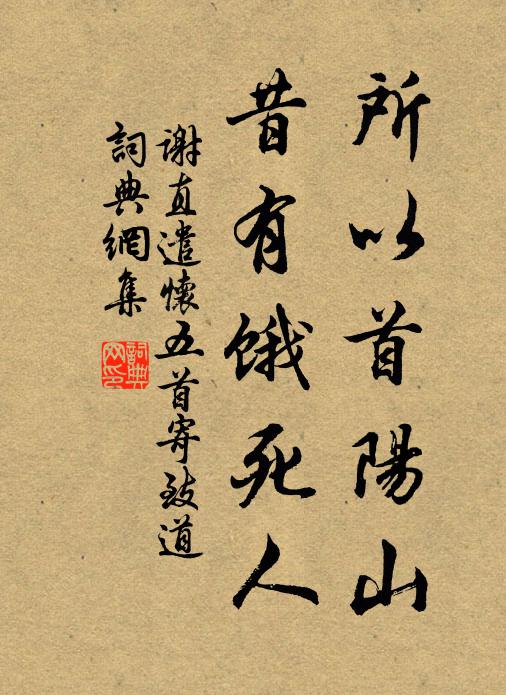 所以首陽山
昔有餓死人
谢直遣懷五首寄致道
詞典網集
詞典網印